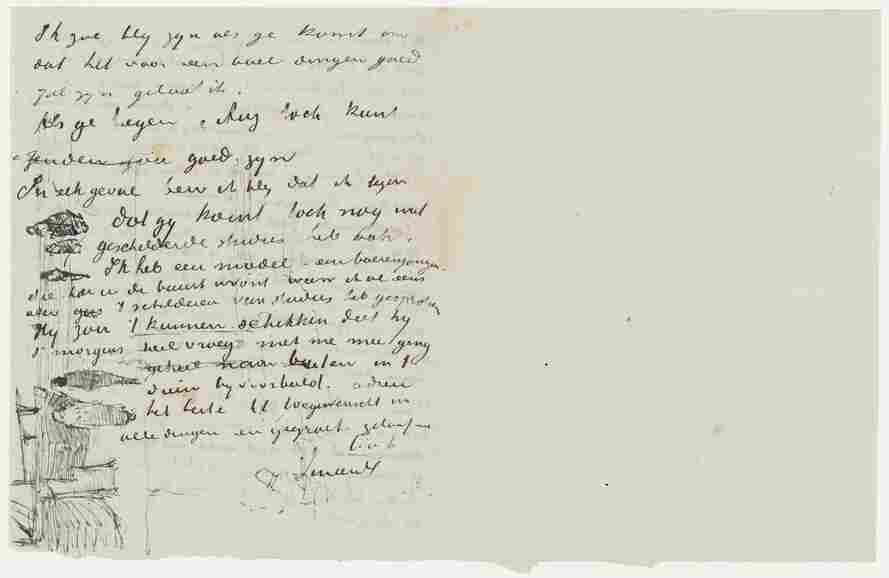 Ik zou bly zyn als ge komt om
dat het voor een boel dingen goed
zal zyn geloof ik.
Als ge tegen Aug toch kunt
zenden zou goed zyn
In elk geval ben ik bly dat ik tegen
dat gy komt toch nog wat
geschilderde studies heb ook.
Ik heb een model – een boerenjongen
die hier in de buurt woont waar ik al eens
over 't schilderen van studies heb gesproken
Hy zou 't kunnen schikken dat hy
's morgens heel vroeg met me mee ging
geheel naar buiten in 't
duin byvoorbeeld. adieu
het beste U toegewenscht in
alle dingen en gegroet. geloof me
t. à t.
Vincent